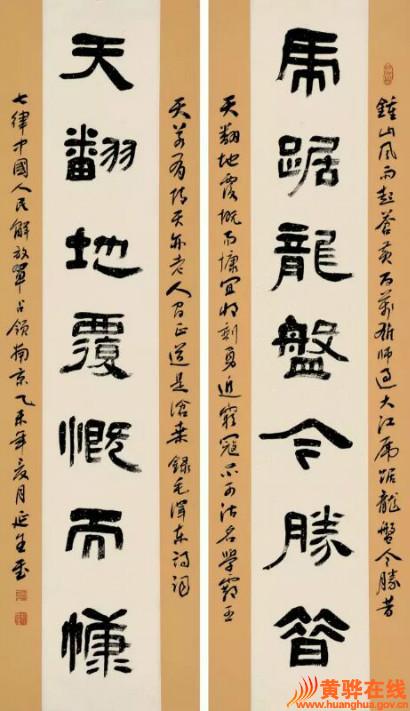 鍾山風雨起蒼黃百萬雄師過大江虎踞龍盤今勝昔
虎踞龍盤今勝昔
天翻地覆慨而慷宜將剩勇追窮寇不可沽名學霸王
天若有情天亦老人間正道是滄桑錄毛澤東詩詞
天翻地覆慨而慷
七律中國人民解放軍占領南京乙未年夏月延
黄骅在线
www.huanghua.gov.cn